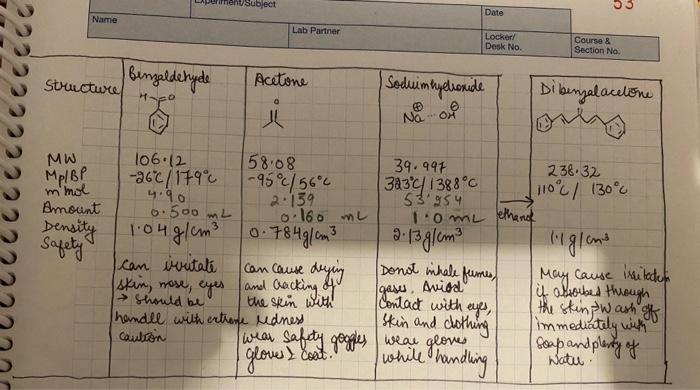 Experiment/Subject
Date
53
Name
Lab Partner
Locker/
Desk No.
Course &
Section No.
Structure
Benzaldehyde
H
O
Acetone
O
Soduimhydroxide
⊕ ⊖
Na OH
Dibenzalacetone
MW 106.12 58.08 39.997 238.32
Mp/BP -26°C/179°C -95°C/56°C 323°C/1388°C 110°C/ 130°C
m'mol 4.90 2.159 53.254
Amount 0.500 mL 0.160 mL 1.0 mL ethanol
Density 1.04 g/cm³ 0.784g/cm³ 2.13g/cm³ 1.1 g/cm³
Safety
can irritate
skin, nose, eyes
→ Should be
handle with extreme
caution
Can cause drying
and cracking of
the skin with
redness
wear safety goggles
gloves & coat.
Donot inhale fumes,
gases. Aviod
Contact with eyes,
Skin and clothing
wear gloves
while handling
May cause irritation
if absorbed through
the skin → Wash off
immediately with
Soap and plenty of
Water.